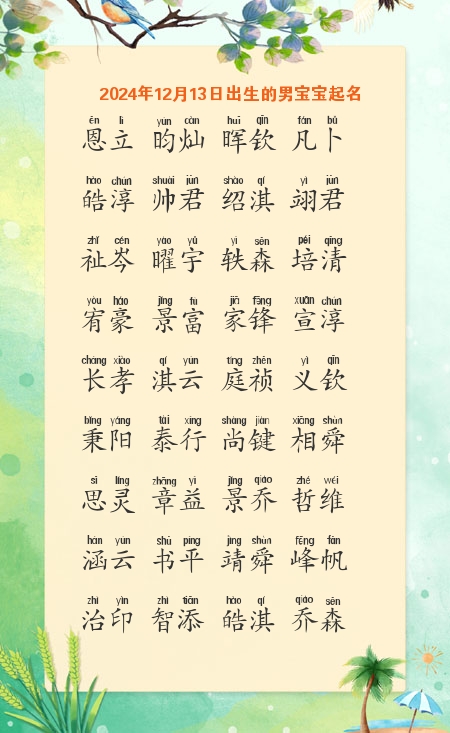 2024年12月13日出生的男宝宝起名
ēn lì yún càn huī qīn fán bǔ
恩立 昀灿 晖钦 凡卜
hào chún shuài jūn shào qí yì jūn
皓淳 帅君 绍淇 翊君
zhǐ cén yào yǔ yì sēn péi qīng
祉岑 曜宇 轶森 培清
yòu háo jǐng fù jiā fēng xuān chún
宥豪 景富 家锋 宣淳
cháng xiào qí yún tíng zhēn yì qīn
长孝 淇云 庭祯 义钦
bǐng yáng tài xíng shàng jiàn xiāng shùn
秉阳 泰行 尚键 相舜
sī líng zhāng yì jǐng qiáo zhé wéi
思灵 章益 景乔 哲维
hán yún shū píng jìng shùn fēng fān
涵云 书平 靖舜 峰帆
zhì yìn zhì tiān hào qí qiáo sēn
治印 智添 皓淇 乔森